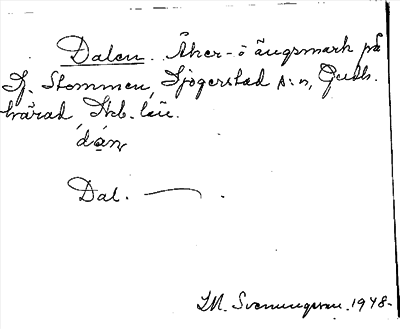 Dalen. Åker- o ängsmark på
Lj. Stommen, Sjogerstad s:n, Gudh.
härad, Skb. län.
dán
Dal. —— .
I.M. Svenungsson. 1948-